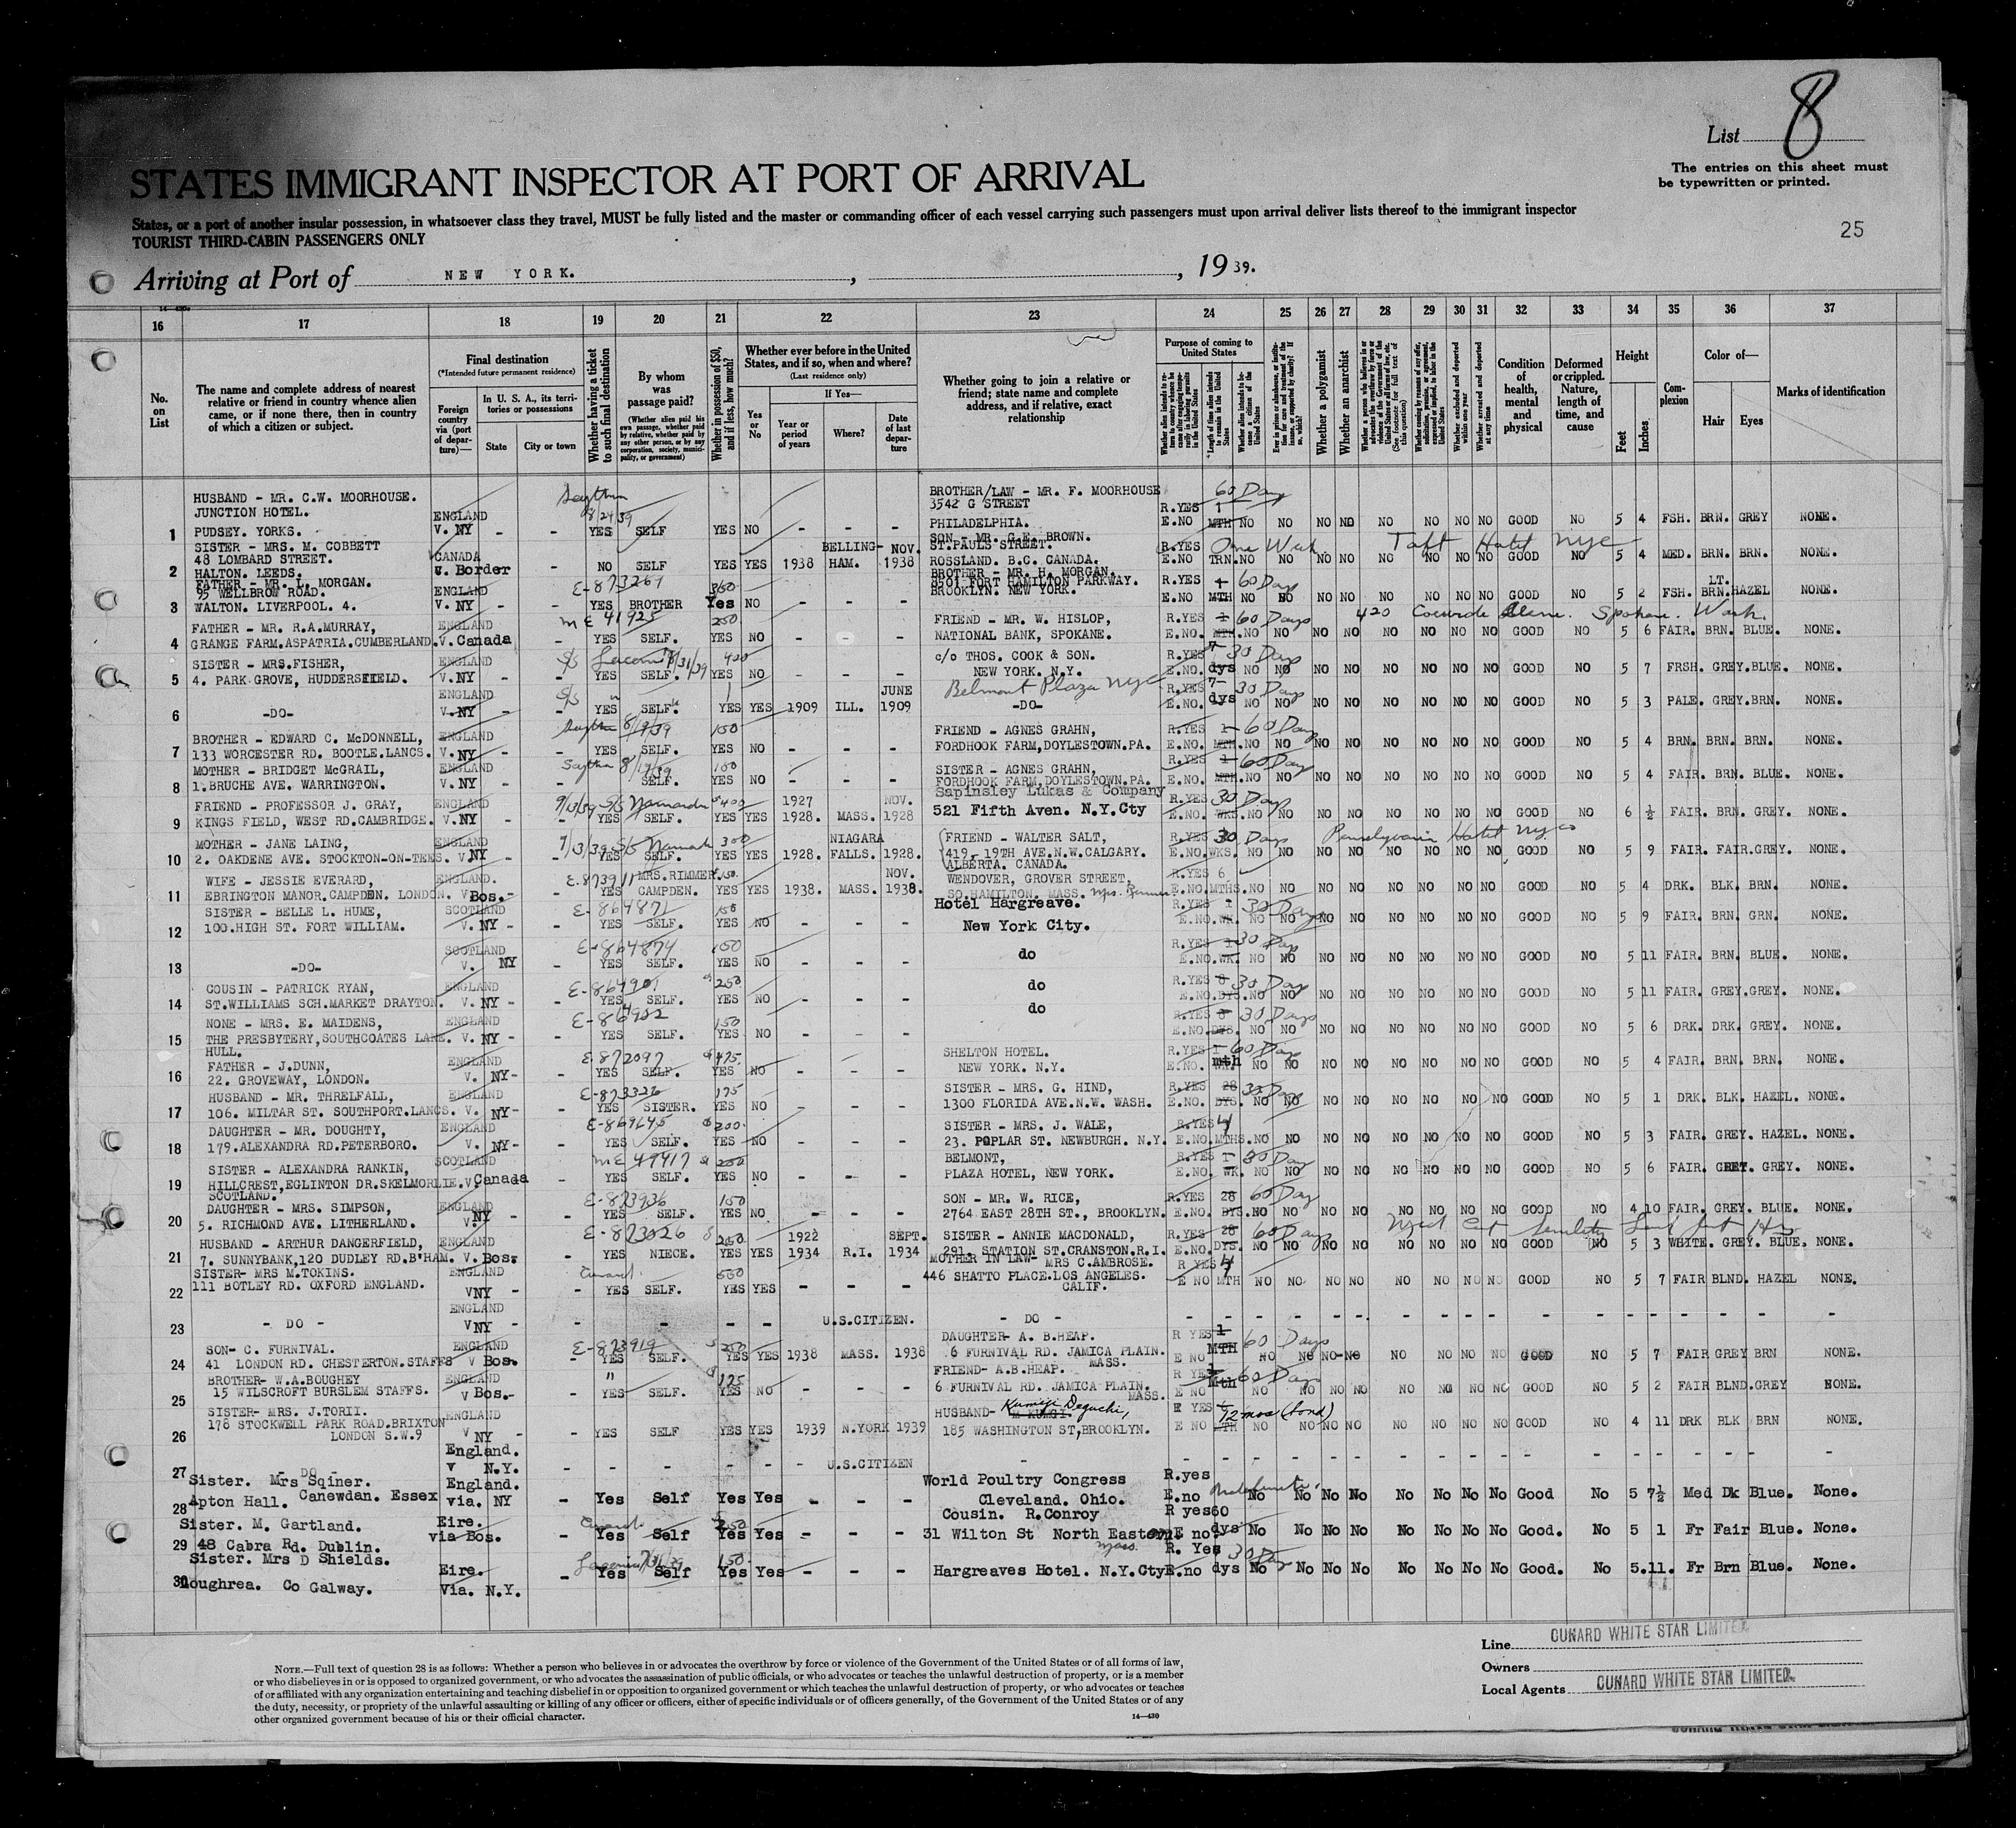 List 8
STATES IMMIGRANT INSPECTOR AT PORT OF ARRIVAL
The entries on this sheet must
be typewritten or printed.
States, or a port of another insular possession, in whatsoever class they travel, MUST be fully listed and the master or commanding officer of each vessel carrying such passengers must upon arrival deliver lists thereof to the immigrant inspector
TOURIST THIRD-CABIN PASSENGERS ONLY
25
Arriving at Port of NEW YORK. , , 1939.
16 17 18 19 20 21 22 23 24 25 26 27 28 29 30 31 32 33 34 35 36 37
No. on List
The name and complete address of nearest relative or friend in country whence alien came, or if none there, then in country of which a citizen or subject.
Final destination
(*Intended future permanent residence)
Foreign country via (port of departure)—
In U. S. A., its territories or possessions
State
City or town
Whether having a ticket to such final destination
By whom was passage paid?
(Whether alien paid his own passage, whether paid by relative, whether paid by any other person, or by any corporation, society, municipality, or government)
Whether in possession of $50, and if less, how much?
Whether ever before in the United States, and if so, when and where?
(Last residence only)
Yes or No
If Yes—
Year or period of years
Where?
Date of last departure
Whether going to join a relative or friend; state name and complete address, and if relative, exact relationship
Purpose of coming to United States
Whether a polygamist
Whether an anarchist
Condition of health, mental and physical
Deformed or crippled. Nature, length of time, and cause
Height
Feet
Inches
Complexion
Color of—
Hair
Eyes
Marks of identification
HUSBAND - MR. C.W. MOORHOUSE. BROTHER/LAW - MR. F. MOORHOUSE 60 Days
JUNCTION HOTEL. ENGLAND 8/24/39 3542 G STREET R.YES 1
1 PUDSEY. YORKS. V. NY - - YES SELF YES NO - - - PHILADELPHIA. E.NO MTH NO NO NO NO NO NO NO NO GOOD NO 5 4 FSH. BRN. GREY NONE.
SISTER - MRS. M. COBBETT SON - MR. G.E. BROWN.
48 LOMBARD STREET. CANADA BELLING- NOV. ST.PAULS STREET. R.YES One Week Taft Hotel NYC
2 HALTON. LEEDS. v. Border - NO SELF YES YES 1938 HAM. 1938 ROSSLAND. B.C. CANADA. E.NO TRN. NO NO NO NO NO NO NO NO GOOD NO 5 4 MED. BRN. BRN. NONE.
FATHER - MR. L. MORGAN. BROTHER - MR. H. MORGAN.
95 WELLBROW ROAD. ENGLAND E-873261 350 8501 FORT HAMILTON PARKWAY. R.YES 1 60 Days LT.
3 WALTON. LIVERPOOL. 4. V. NY - - YES BROTHER Yes NO - - - BROOKLYN. NEW YORK. E.NO MTH NO NO NO NO NO NO NO NO GOOD NO 5 2 FSH. BRN. HAZEL NONE.
FATHER - MR. R.A.MURRAY, ENGLAND ME 41425 250 FRIEND - MR. W. HISLOP, R.YES 1 60 Days 420 Spokane. Wash.
4 GRANGE FARM.ASPATRIA.CUMBERLAND. V. Canada - YES SELF. YES NO - - - NATIONAL BANK, SPOKANE. E.NO. MTH. NO NO NO NO NO NO NO NO GOOD NO 5 6 FAIR. BRN. BLUE. NONE.
SISTER - MRS.FISHER, ENGLAND S/S Laconia 7/31/39 400 c/o THOS. COOK & SON. R.YES 7 30 Days
5 4. PARK GROVE, HUDDERSFIELD. V.NY - - YES SELF. YES NO - - - NEW YORK. N.Y. E.NO. dys NO NO NO NO NO NO NO NO GOOD NO 5 7 FRSH. GREY. BLUE. NONE.
ENGLAND S/S " JUNE Belmont Plaza NYC R.YES 7 30 Days
6 -DO- V.NY - - YES SELF. YES YES 1909 ILL. 1909 -DO- E.NO. dys NO NO NO NO NO NO NO NO GOOD NO 5 3 PALE. GREY. BRN. NONE.
BROTHER - EDWARD C. McDONNELL, ENGLAND 150 FRIEND - AGNES GRAHN, R.YES 1 60 Days
7 133 WORCESTER RD. BOOTLE.LANCS. V. NY - - YES SELF. YES NO - - - FORDHOOK FARM,DOYLESTOWN.PA. E.NO. MTH. NO NO NO NO NO NO NO NO GOOD NO 5 4 BRN. BRN. BRN. NONE.
MOTHER - BRIDGET McGRAIL, ENGLAND 150 SISTER - AGNES GRAHN, R.YES 1 60 Days
8 1.BRUCHE AVE. WARRINGTON. V. NY - - SELF. YES NO - - - FORDHOOK FARM,DOYLESTOWN.PA. E.NO. MTH. NO NO NO NO NO NO NO NO GOOD NO 5 4 FAIR. BRN. BLUE. NONE.
FRIEND - PROFESSOR J. GRAY, ENGLAND $400 1927 NOV. Sapinsley Lukas & Company R.YES 30 Days
9 KINGS FIELD, WEST RD.CAMBRIDGE. V.NY - - YES SELF. YES YES 1928. MASS. 1928 521 Fifth Aven. N.Y.Cty E.NO. WKS. NO NO NO NO NO NO NO NO GOOD NO 6 ½ FAIR. BRN. GREY. NONE.
MOTHER - JANE LAING, ENGLAND 300 NIAGARA FRIEND - WALTER SALT, R.YES 30 Days Pennsylvania Hotel NYC
10 2. OAKDENE AVE. STOCKTON-ON-TEES. V.NY - - YES SELF. YES YES 1928. FALLS. 1928. 419- 19TH AVE.N.W.CALGARY. E.NO. WKS. NO NO NO NO NO NO NO NO GOOD NO 5 9 FAIR. FAIR. GREY. NONE.
ALBERTA. CANADA.
WIFE - JESSIE EVERARD, ENGLAND. E-873911 MRS.RIMMER. 150. NOV. WENDOVER, GROVER STREET, R.YES 6
11 EBRINGTON MANOR.CAMPDEN. LONDON. V Bos.- - YES CAMPDEN. YES YES 1938. MASS. 1938. SO.HAMILTON. MASS. E.NO. MTHS. NO NO NO NO NO NO NO NO GOOD NO 5 4 DRK. BLK. BRN. NONE.
SISTER - BELLE L. HUME, SCOTLAND E-864871 150 Hotel Hargreave. R.YES 1 30 Days
12 100.HIGH ST. FORT WILLIAM. V. NY - - YES SELF. YES NO - - - New York City. E.NO. WK. NO NO NO NO NO NO NO NO GOOD NO 5 9 FAIR. BRN. GRN. NONE.
SCOTLAND E-864874 150 R.YES 1 30 Days
13 -DO- V. NY - YES SELF. YES NO - - - do E.NO. WK. NO NO NO NO NO NO NO NO GOOD NO 5 11 FAIR. BRN. BLUE. NONE.
COUSIN - PATRICK RYAN, ENGLAND E-864901 $250 do R.YES 8 30 Days
14 ST.WILLIAMS SCH.MARKET DRAYTON. V. NY - - YES SELF. YES NO - - - E.NO. DYS. NO NO NO NO NO NO NO NO GOOD NO 5 11 FAIR. GREY. GREY. NONE.
NONE - MRS. E. MAIDENS, ENGLAND E-864902 150 do R.YES 8 30 Days
15 THE PRESBYTERY,SOUTHCOATES LANE. V. NY - - YES SELF. YES NO - - - E.NO. DYS. NO NO NO NO NO NO NO NO GOOD NO 5 6 DRK. DRK. GREY. NONE.
HULL.
FATHER - J.DUNN, ENGLAND E-872097 $475. SHELTON HOTEL. R.YES 1 60 Days
16 22. GROVEWAY, LONDON. V. NY- - YES SELF. YES NO - - - NEW YORK. N.Y. E.NO. mth NO NO NO NO NO NO NO NO GOOD NO 5 4 FAIR. BRN. BRN. NONE.
HUSBAND - MR. THRELFALL, ENGLAND E-873326 175 SISTER - MRS. G. HIND, R.YES 28 30 Days
17 106. MILTAR ST. SOUTHPORT.LANCS. V. NY- - YES SISTER. YES NO - - - 1300 FLORIDA AVE.N.W. WASH. E.NO. DYS. NO NO NO NO NO NO NO NO GOOD NO 5 1 DRK. BLK. HAZEL. NONE.
DAUGHTER - MR. DOUGHTY, ENGLAND E-869645 $200. SISTER - MRS. J. WALE, R.YES 4
18 179.ALEXANDRA RD.PETERBORO. V. NY- - YES SELF. YES NO - - - 23. POPLAR ST. NEWBURGH. N.Y. E.NO. MTHS. NO NO NO NO NO NO NO NO GOOD NO 5 3 FAIR. GREY. HAZEL. NONE.
SISTER - ALEXANDRA RANKIN, SCOTLAND ME 49417 250 BELMONT, R.YES 1 30 Days
19 HILLCREST,EGLINTON DR.SKELMORLIE. V.Canada - YES SELF. YES NO - - - PLAZA HOTEL, NEW YORK. E.NO. WK. NO NO NO NO NO NO NO NO GOOD NO 5 6 FAIR. GREY. GREY. NONE.
SCOTLAND.
DAUGHTER - MRS. SIMPSON, ENGLAND E-873936 150 SON - MR. W. RICE, R.YES 28 60 Days
20 5. RICHMOND AVE. LITHERLAND. V. NY - - YES SELF. YES NO - - - 2764 EAST 28TH ST., BROOKLYN. E.NO. DYS. NO NO NO NO NO NO NO NO GOOD NO 4 10 FAIR. GREY. BLUE. NONE.
HUSBAND - ARTHUR DANGERFIELD, ENGLAND E-873026 $250 1922 SEPT. SISTER - ANNIE MACDONALD, R.YES 28 60 Days
21 7. SUNNYBANK,120 DUDLEY RD.B'HAM. V. Bos. - YES NIECE. YES YES 1934 R.I. 1934 291. STATION ST.CRANSTON.R.I. E.NO. DYS. NO NO NO NO NO NO NO NO GOOD NO 5 3 WHITE. GREY. BLUE. NONE.
SISTER- MRS M.TOKINS. ENGLAND Cunard. 550 MOTHER IN LAW- MRS C.AMBROSE. R YES 4
22 111 BOTLEY RD. OXFORD ENGLAND. VNY - - YES SELF. YES YES - - - 446 SHATTO PLACE.LOS ANGELES. CALIF. E NO MTH NO NO NO NO NO NO NO NO GOOD NO 5 7 FAIR BLND. HAZEL NONE.
ENGLAND
23 - DO - VNY - - - - - - - U.S.CITIZEN. - DO - - - - - - - - - - - - - - - - - - -
SON- C. FURNIVAL. ENGLAND E-873919 $250 DAUGHTER- A. B.HEAP. R YES 1 60 Days
24 41 LONDON RD. CHESTERTON.STAFFS V Bos. - YES SELF. YES YES 1938 MASS. 1938 6 FURNIVAL RD. JAMICA PLAIN. MASS. E NO MTH NO NO NO NO NO NO NO NO GOOD NO 5 7 FAIR GREY BRN NONE.
BROTHER- W.A.BOUGHEY ENGLAND " $175 FRIEND- A.B.HEAP. R YES 1 60 Days
25 15 WILSCROFT BURSLEM STAFFS. V Bos.- - YES SELF. YES NO - - - 6 FURNIVAL RD. JAMICA PLAIN. MASS. E NO Mth NO NO NO NO NO NO NO NO GOOD NO 5 2 FAIR BLND. GREY NONE.
SISTER- MRS. J.TORII. ENGLAND HUSBAND- Kumeji Deguchi, R YES 1 12 mos (bond)
26 178 STOCKWELL PARK ROAD.BRIXTON V NY - - YES SELF YES YES 1939 N.YORK 1939 185 WASHINGTON ST,BROOKLYN. E NO MTH NO NO NO NO NO NO NO NO GOOD NO 4 11 DRK BLK BRN NONE.
LONDON S.W.9
England.
27 - DO - v N.Y. - - - - - - U.S.CITIZEN - - - - - - - - - - - - - - - - -
Sister. Mrs Sqiner. England. World Poultry Congress R.yes
28 Apton Hall. Canewdan. Essex via. NY - Yes Self Yes Yes - - - Cleveland. Ohio. E.no No No No No No No No No Good No 5 7½ Med Dk Blue. None.
Sister. M. Gartland. Eire. Cunard. $250 Cousin. R.Conroy R yes 60
29 48 Cabra Rd. Dublin. via Bos. - Yes Self Yes Yes - - - 31 Wilton St North Eastern. Mass. E no dys No No No No No No No No Good. No 5 1 Fr Fair Blue. None.
Sister. Mrs D Shields. Eire. Laconia 7/31/39 150. R. Yes 30 Days
30 Loughrea. Co Galway. Via. N.Y. - Yes Self Yes Yes - - - Hargreaves Hotel. N.Y.Cty E.no dys No No No No No No No No Good. No 5.11. Fr Brn Blue. None.
Line CUNARD WHITE STAR LIMITED.
Owners
Local Agents CUNARD WHITE STAR LIMITED.
NOTE.—Full text of question 28 is as follows: Whether a person who believes in or advocates the overthrow by force or violence of the Government of the United States or of all forms of law,
or who disbelieves in or is opposed to organized government, or who advocates the assassination of public officials, or who advocates or teaches the unlawful destruction of property, or is a member
of or affiliated with any organization entertaining and teaching disbelief in or opposition to organized government or which teaches the unlawful destruction of property, or who advocates or teaches
the duty, necessity, or propriety of the unlawful assaulting or killing of any officer or officers, either of specific individuals or of officers generally, of the Government of the United States or of any
other organized government because of his or their official character.
14—430